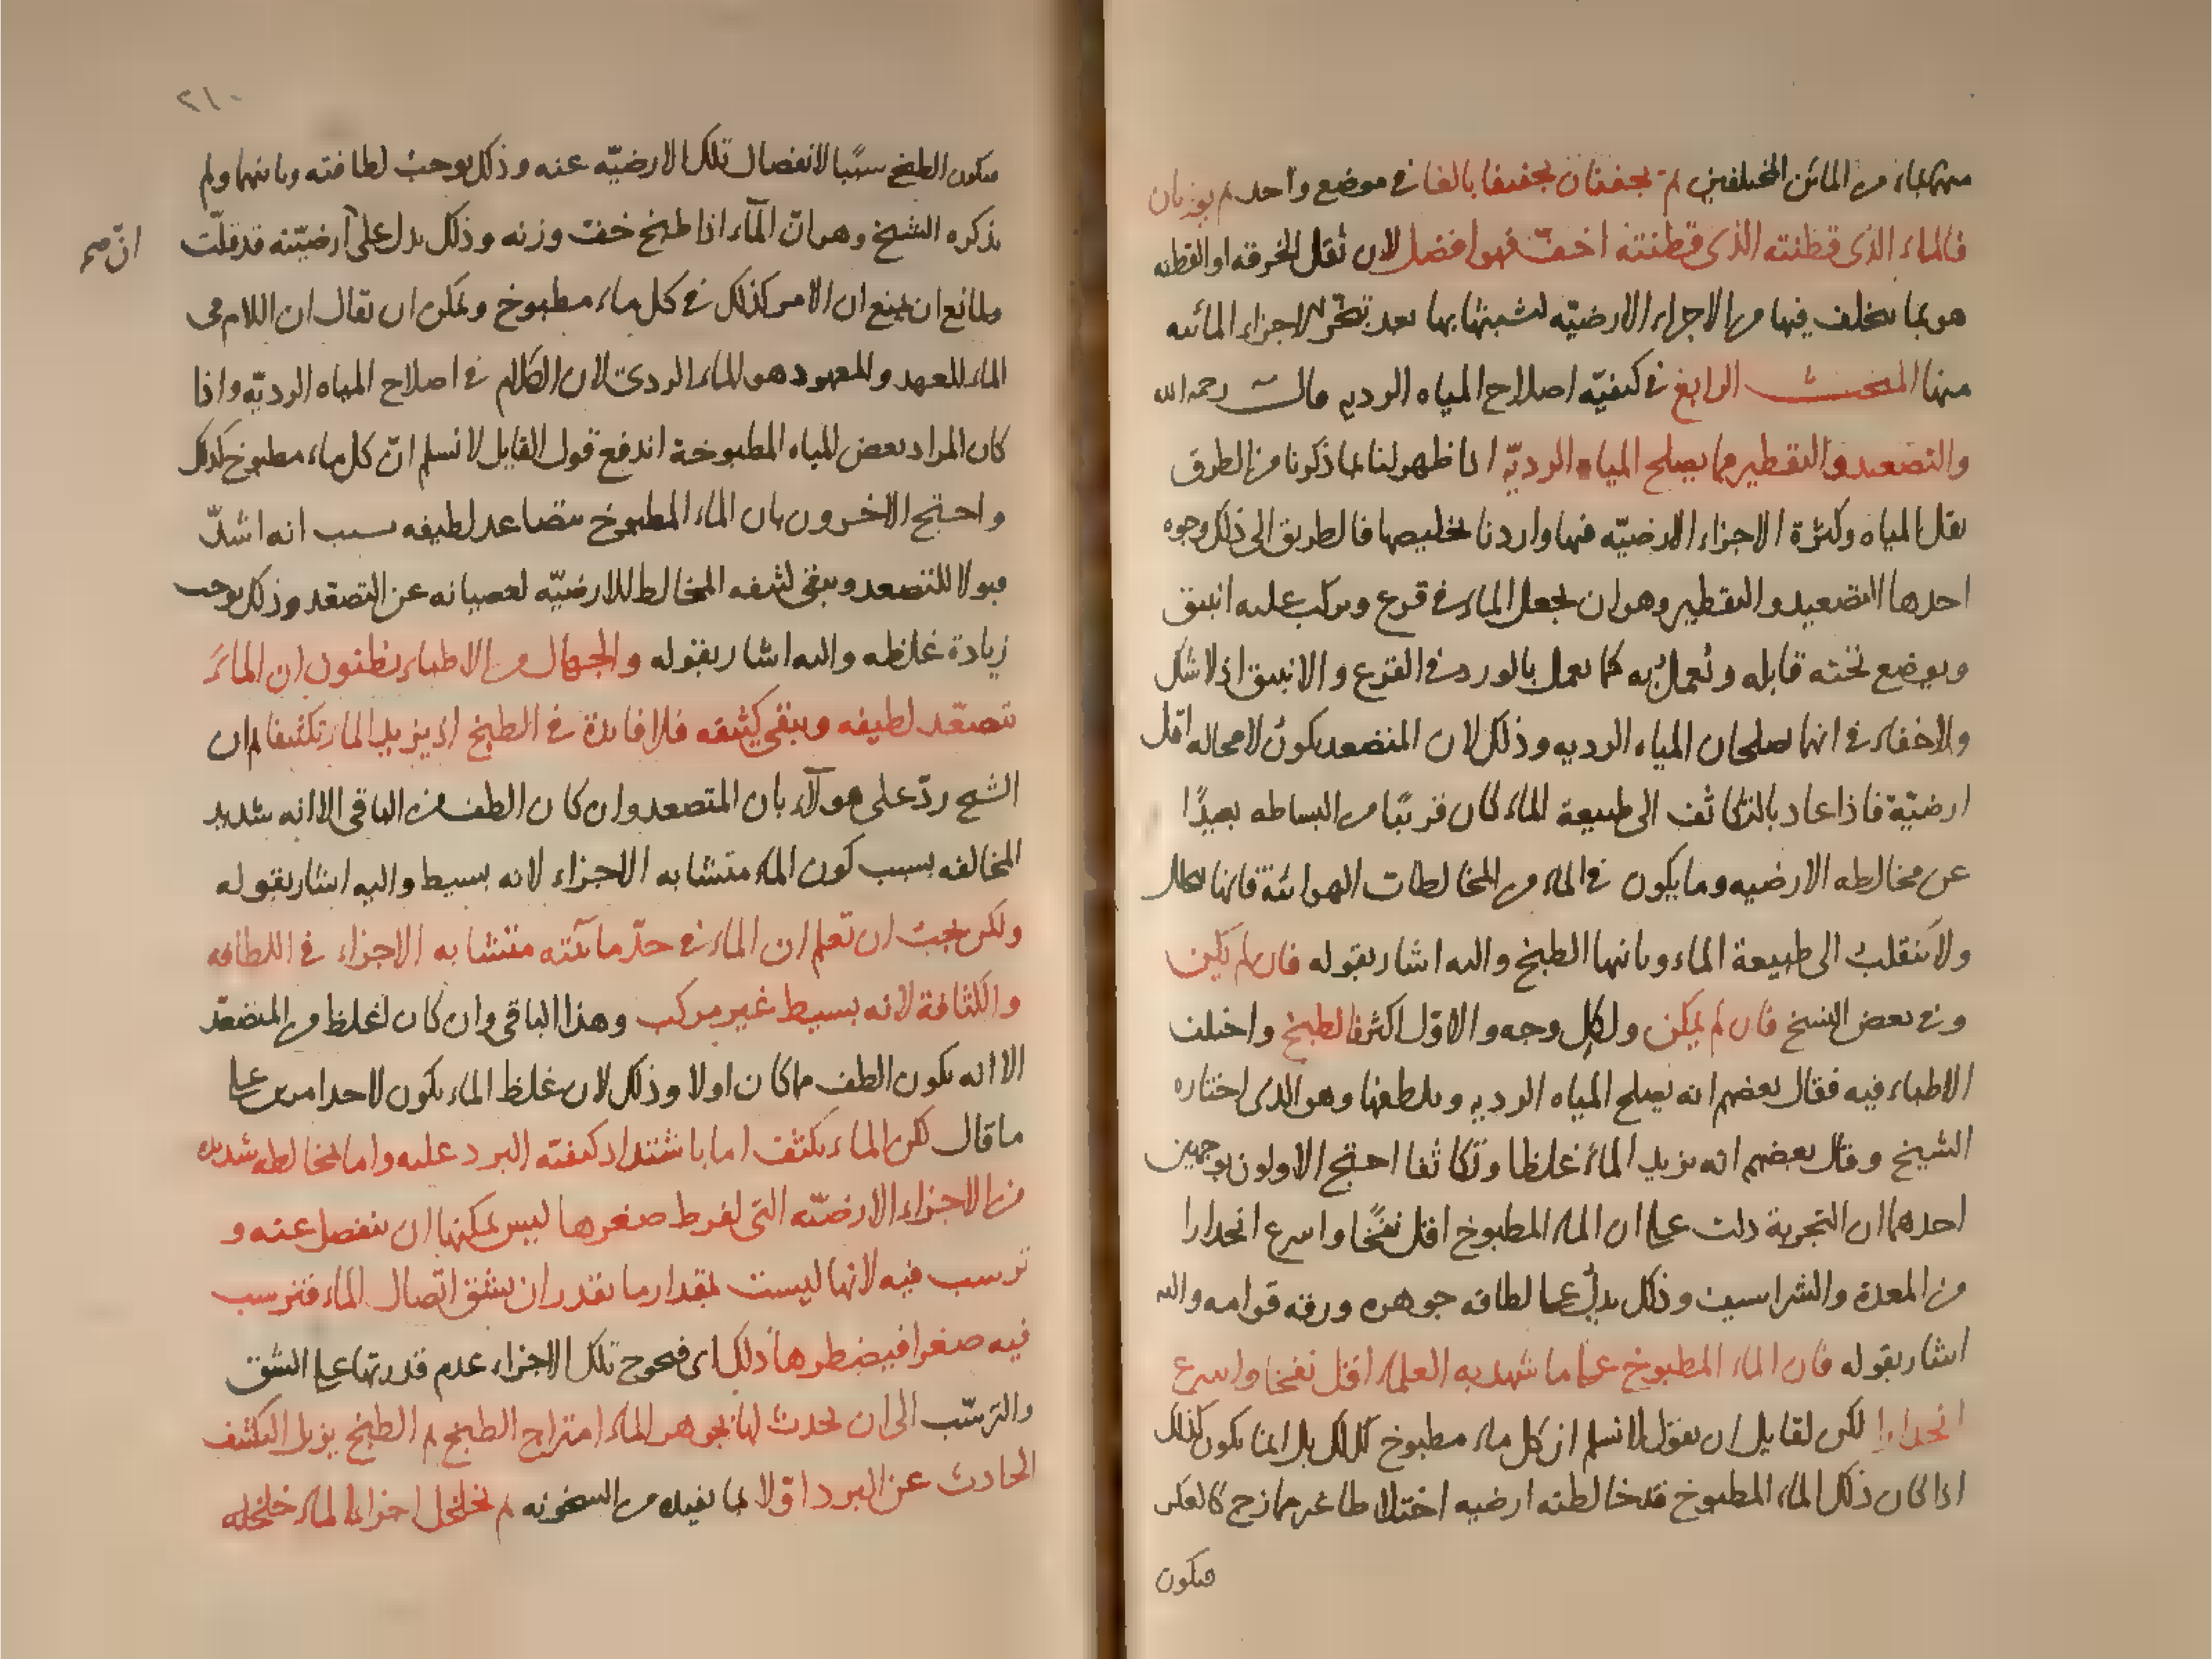 منهما بماء من المائين المختلفين ثم يجففتان تجفيفا بالغا في موضع واحد ثم يوزنان
فالماء الذى قطنته الذى قطنته اخفّ فهو افضل لان ثقل الخرقه او القطنه
هو بما يتخلف فيها من الاجزاء الارضيّه لتشبثها بها بعد تبخّر الاجزاء المائيه
منها المبحث الرابع في كيفيّه اصلاح المياه الرديه قال رحمه الله
والتصعيد والتقطير مما يصلح المياه الرديّه اذا ظهر لنا بما ذكرنا من الطرق
ثقل المياه وكثرة الاجزاء الارضيّه فيها واردنا تخليصها فالطريق الى ذلك وجوه
احدها التصعيد والتقطير وهو ان يجعل الماء في قرع ويركب عليه انبيق
ويوضع تحته قابله ويعمل به كما يعمل بالورد في القرع والانبيق اذ لا شك
ولا خفاء في انهما يصلحان المياه الرديه وذلك لان المتصعد يكون لا محاله اقل
ارضيّة فاذا عاد بالتكاثف الى طبيعة الماء كان قريبًا من البساطه بعيدًا
عن مخالطه الارضيه وما يكون في الماء من المخالطات الهوائية فانها تتحلل
ولا تنقلب الى طبيعة الماء وثانيها الطبخ واليه اشار بقوله فان لم يكن
وفي بعض النسخ فان لم يمكن ولكل وجه والاول اكثر فالطبخ واختلف
الاطباء فيه فقال بعضهم انه يصلح المياه الرديه ويلطفها وهو الذى اختاره
الشيخ وقال بعضهم انه يزيد الماء غلظا وتكاثفا احتج الاولون بوجهين
احدهما ان التجربة دلت على ان الماء المطبوخ اقل نفخًا واسرع انحدارا
من المعدة والشراسيف وذلك يدلّ على لطافه جوهره ورقه قوامه واليه
اشار بقوله فان الماء المطبوخ على ما شهد به العلماء اقل نفخا واسرع
انحدارا لكن لقايل ان يقول لا نسلم ان كل ماء مطبوخ كذلك بل انما يكون كذلك
اذا كان ذلك الماء المطبوخ قد خالطته ارضيه اختلاطا غير ممازج كالعكر
فيكون
٢١٠
فيكون الطبخ سببًا لانفصال تلك الارضيّه عنه وذلك يوجب لطافته وثانيهما ولم
يذكره الشيخ وهو انّ الماء اذا طبخ خف وزنه وذلك يدل على ارضيّته قد قلّت
انّ صح
ولمانع ان يمنع ان الامر كذلك في كل ماء مطبوخ ويمكن ان يقال ان اللام في
الماء للعهد والمعهود هو الماء الردى لان الكلام في اصلاح المياه الرديّه واذا
كان المراد بعض المياه المطبوخة اندفع قول القايل لا نسلم انّ كل ماء مطبوخ كذلك
واحتج الاخرون بان الماء المطبوخ يتصاعد لطيفه بسبب انه اشدّ
قبولا للتصعد ويبقى كثيفه المخالط للارضيّه لعصيانه عن التصعّد وذلك يوجب
زيادة غلظه واليه اشار بقوله والجهال من الاطباء يظنون ان الماء
يتصعّد لطيفه ويبقى كثيفه فلا فايدة في الطبخ اذ يزيد الماء تكثيفا ثم ان
الشيخ ردّ على هولاء بان المتصعد وان كان الطف من الباقى الا انه شديد
المخالفه بسبب كون الماء متشابه الاجزاء لانه بسيط واليه اشار بقوله
ولكن يجب ان تعلم ان الماء في حدّ مائيّته متشابه الاجزاء في اللطافه
والكثافة لانه بسيط غير مركب وهذا الباقى وان كان اغلظ من المتصعّد
الا انه يكون الطف مما كان اولا وذلك لان غلظ الماء يكون لاحد امرين على
ما قال لكن الماء يكثف اما باشتداد كيفيّه البرد عليه واما لمخالطه شديده
من الاجزاء الارضيّه التى لفرط صغرها ليس يمكنها ان تنفصل عنه و
ترسب فيه لانها ليست بمقدار ما يقدر ان يشق اتصال الماء فترسب
فيه صغرا فيضطرها ذلك اى فيحوج تلك الاجزاء عدم قدرتها على الشق
والترسّب الى ان يحدث لها بجوهر الماء امتزاج الطبخ ثم الطبخ يزيل التكثيف
الحادث عن البرد اوّلا بما يفيده من السخونه ثم يخلخل اجزاء الماء خلخله